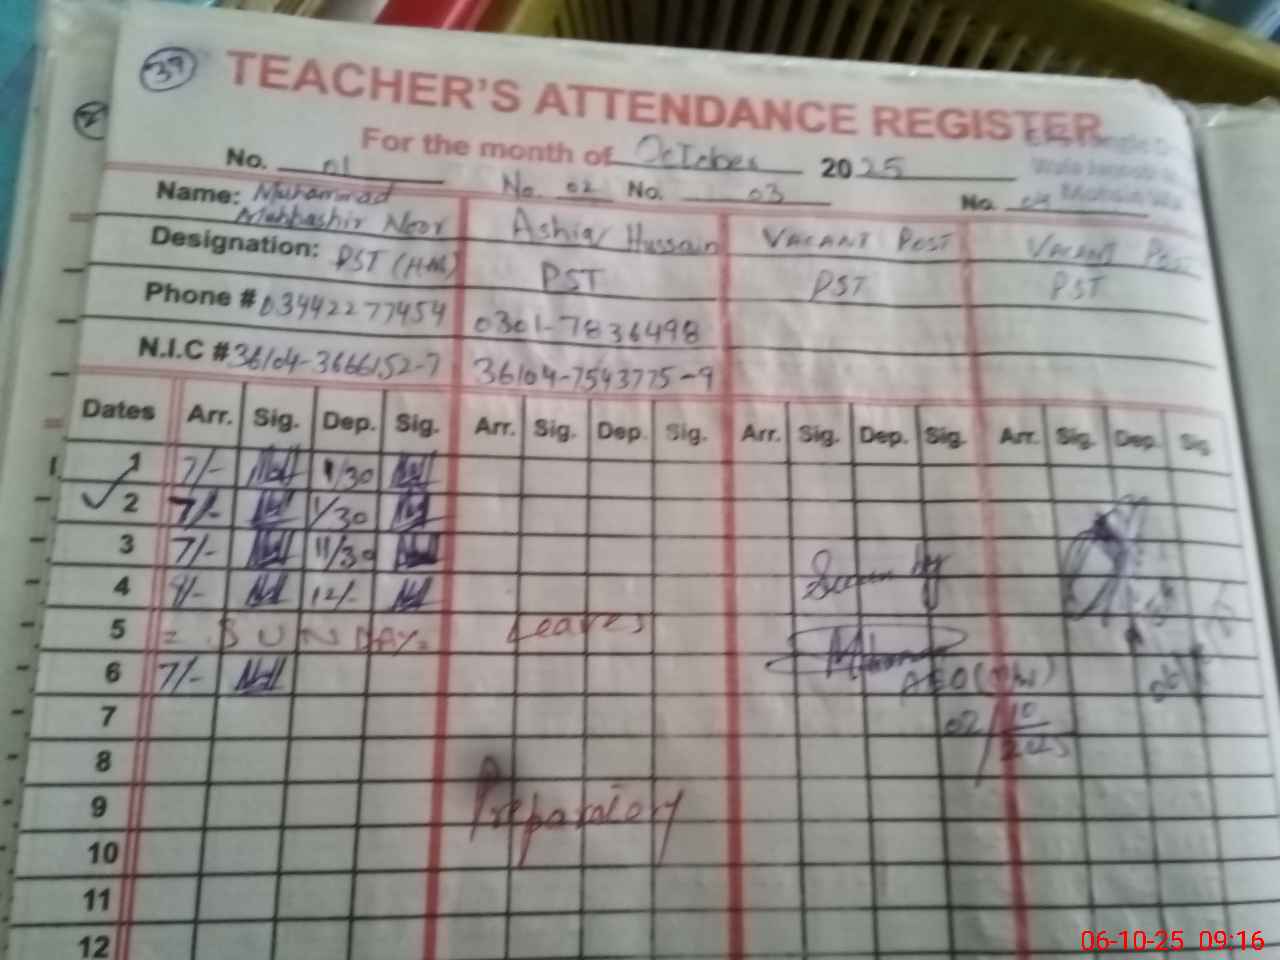 39
TEACHER'S ATTENDANCE REGISTER
For the month of October 2025
No. 01 No. 02 No. 03 No. 04
Name: Muhammad Mubbashir Noor Ashiq Hussain VACANT POST VACANT POST
Designation: PST (H.M) PST PST PST
Phone # 03442277454 0301-7836498
N.I.C # 36104-3666152-7 36104-7543775-9
Dates Arr. Sig. Dep. Sig. Arr. Sig. Dep. Sig. Arr. Sig. Dep. Sig. Arr. Sig. Dep. Sig.
1 7/- 1/30
2 7/- 1/30
3 7/- 11/30
4 8/- 12/-
5 = SUNDAY = Leaves
6 7/- AEO
7 02/10/2025
8
9 Preparatory
10
11
12
06-10-25 09:16